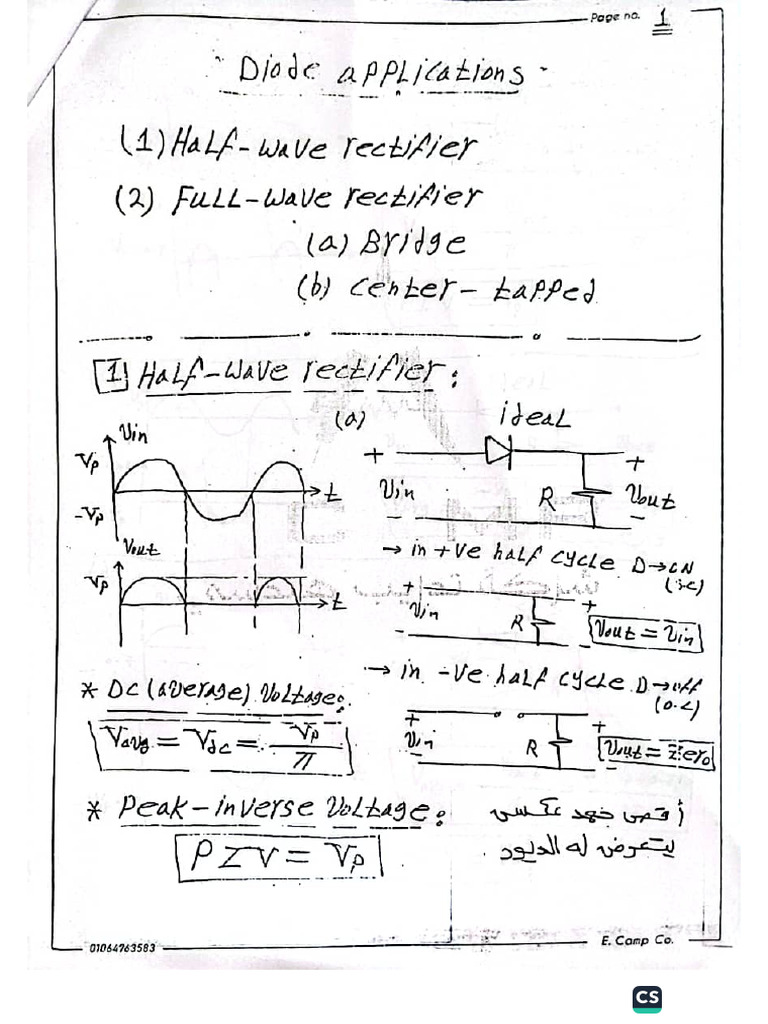 Page no. 1
Diode applications
(1) Half-wave rectifier
(2) Full-wave rectifier
(a) Bridge
(b) center-tapped
[1] Half-wave rectifier:
(a) ideal
Vin
Vp
-Vp
t
Vout
Vp
t
+ +
Vin R Vout
- -
→ in +ve half cycle D→ON
(s.c)
+ +
Vin R Vout = Vin
-
→ in -ve half cycle D→off
(o.c)
+ +
Vin R Vout = zero
-
* Dc (average) Voltage:
Vavg = Vdc = Vp/π
* Peak-inverse Voltage:
PIV = Vp
أقصى جهد عكسى
يتعرض له الديود
01064763583
E. Camp Co.
CS